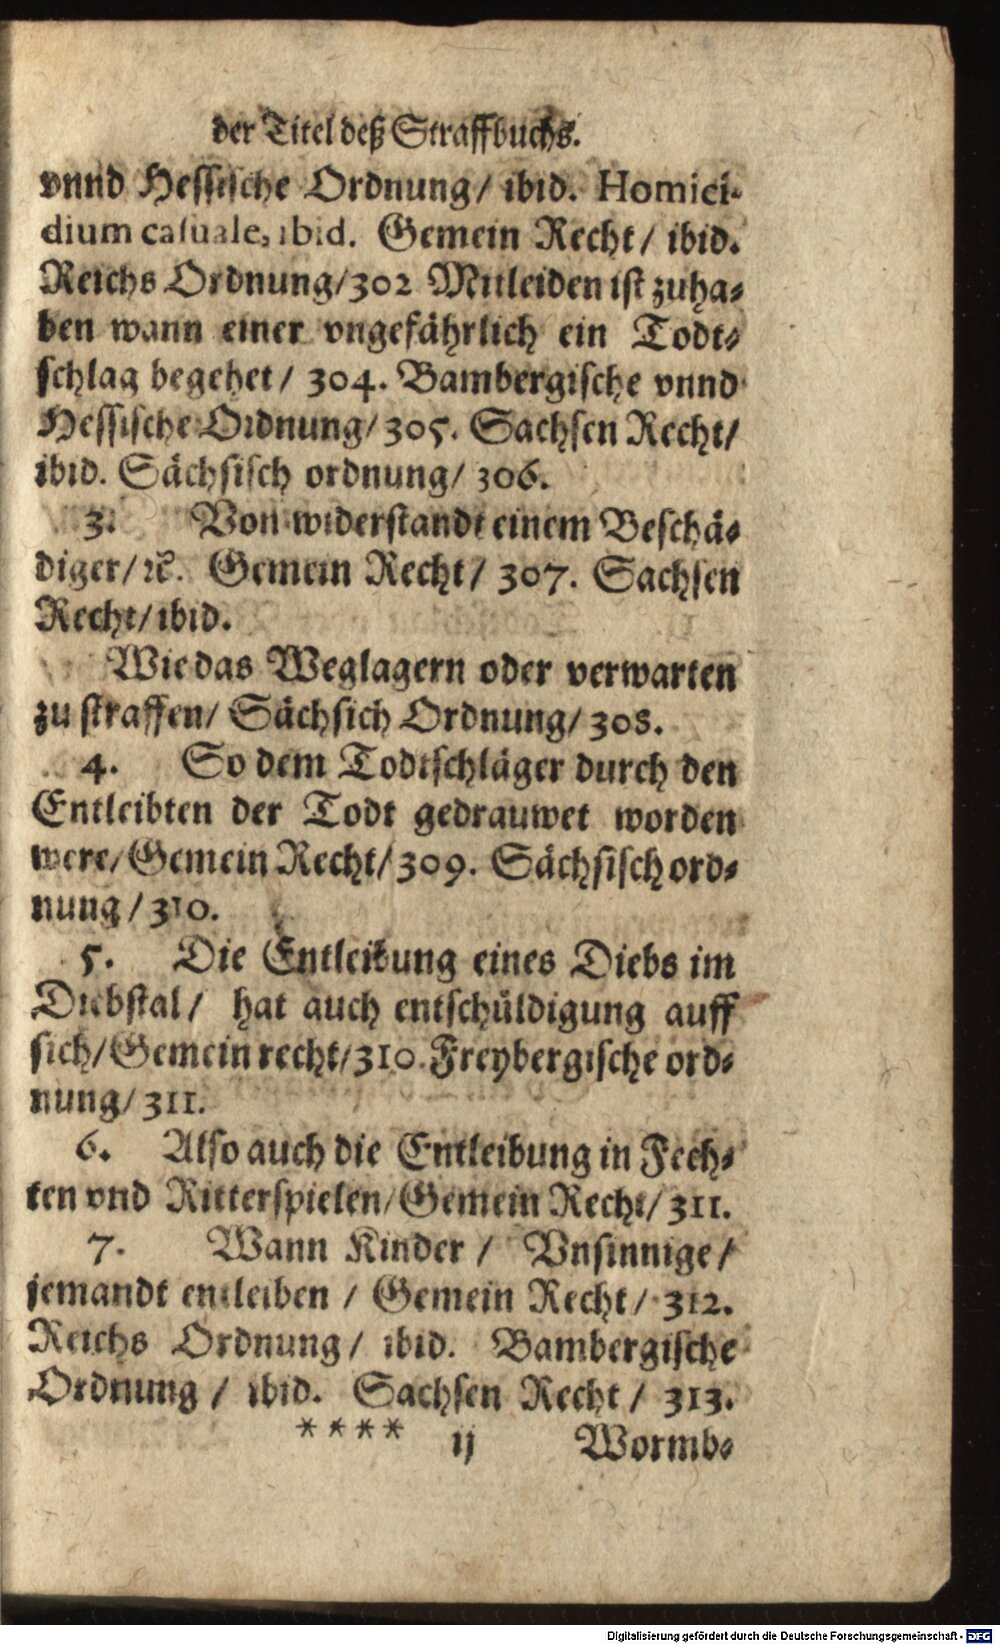 der Titel deß Straffbuchs.
vnnd Hessische Ordnung/ ibid. Homici-
dium casuale, ibid. Gemein Recht/ ibid.
Reichs Ordnung/302 Mitleiden ist zuha-
ben wann einer vngefährlich ein Todt-
schlag begehet/ 304. Bambergische vnnd
Hessische Ordnung/305. Sachsen Recht/
ibid. Sächsisch ordnung/ 306.
3. Von widerstandt einem Beschä-
diger/ꝛc. Gemein Recht/ 307. Sachsen
Recht/ibid.
Wie das Weglagern oder verwarten
zu straffen/ Sächsich Ordnung/ 308.
4. So dem Todtschläger durch den
Entleibten der Todt gedrauwet worden
were/Gemein Recht/309. Sächsisch ord-
nung/310.
5. Die Entleibung eines Diebs im
Diebstal/ hat auch entschüldigung auff
sich/Gemein recht/310.Freybergische ord-
nung/311.
6. Also auch die Entleibung in Fech-
ten vnd Ritterspielen/Gemein Recht/311.
7. Wann Kinder / Vnsinnige/
jemandt entleiben / Gemein Recht/ 312.
Reichs Ordnung/ ibid. Bambergische
Ordnung / ibid. Sachsen Recht / 313.
**** ij Wormb-
Digitalisierung gefördert durch die Deutsche Forschungsgemeinschaft - DFG